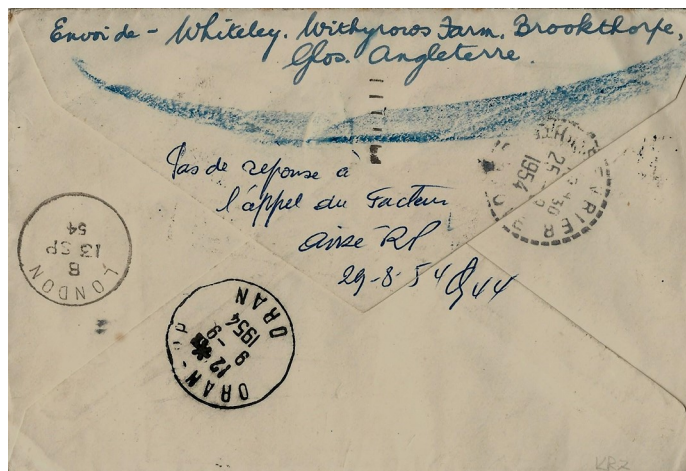 Envoi de - Whiteley. Withyrows Farm. Brookthorpe,
Glos. Angleterre.
Pas de reponse à
l'appel du Facteur
avisé RP
29-8-54 944
25 - 8
1954
LONDON
B
13 SP
54
ORAN
12
9 - 9
1954
ORAN
KRZ